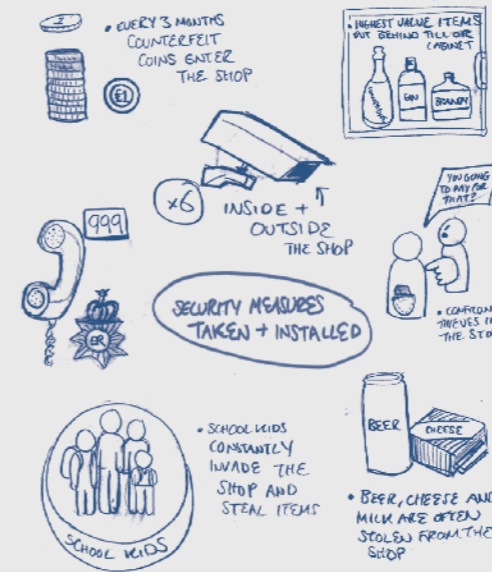 1
• EVERY 3 MONTHS
COUNTERFEIT
COINS ENTER
THE SHOP
£1
• HIGHEST VALUE ITEMS
PUT BEHIND TILL OR
CABINET
GIN
BRANDY
x6
INSIDE +
OUTSIDE
THE SHOP
999
ER
YOU GOING
TO PAY FOR
THAT?
• CONFRON
THIEVES IN
THE STO
SECURITY MEASURES
TAKEN + INSTALLED
SCHOOL KIDS
• SCHOOL KIDS
CONSTANTLY
INVADE THE
SHOP AND
STEAL ITEMS
BEER
CHEESE
• BEER, CHEESE AND
MILK ARE OFTEN
STOLEN FROM THE
SHOP